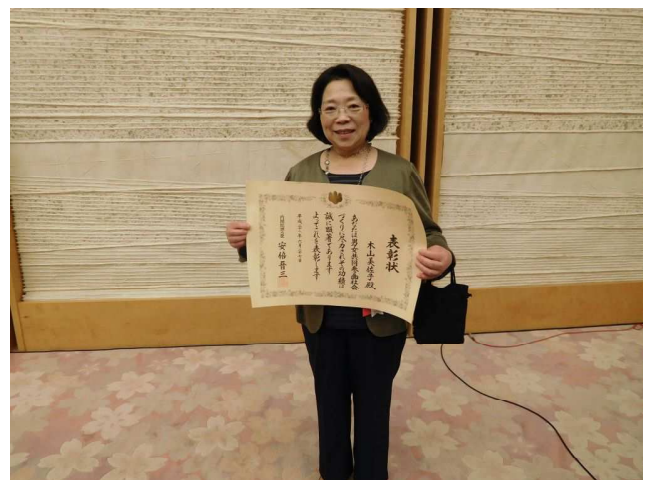 表彰状
木山美佐子殿
あなたは男女共同参画社会
づくりに尽力されその功績は
誠に顕著であります
よってこれを表彰します
内閣総理大臣
安倍晋三